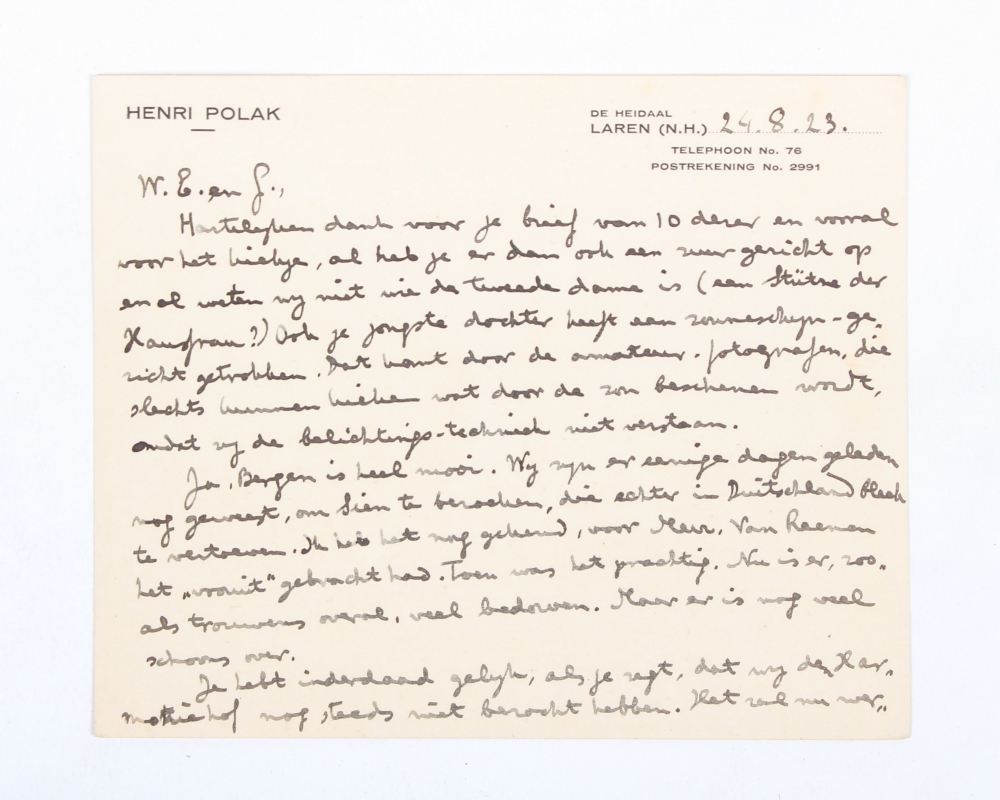 HENRI POLAK
DE HEIDAAL
LAREN (N.H.) 24.8.23.
TELEPHOON No. 76
POSTREKENING No. 2991
W. E. en J.,
Hartelyken dank voor je brief van 10 dezer en vooral
voor het kiekje, al heb je er dan ook een zuur gezicht op
en al weten wy niet wie de tweede dame is (een Stütze der
Hausfrau?) Ook je jongste dochter heeft een zonneschyn-ge-
zicht getrokken. Dat komt door de amateur-fotografen, die
slechts kunnen kieken wat door de zon beschenen wordt,
omdat zy de belichtings-techniek niet verstaan.
Ja, Bergen is heel mooi. Wy zyn er eenige dagen geleden
nog geweest, om Sien te bezoeken, die echter in Duitschland bleek
te vertoeven. Ik heb het nog gekend, voor Mevr. Van Reenen
het „vooruit" gebracht had. Toen was het prachtig. Nu is er, zoo-
als trouwens overal, veel bedorven. Maar er is nog veel
schoons over.
Je hebt inderdaad gelyk, als je zegt, dat wy den Har-
moniehof nog steeds niet bezocht hebben. Het zal nu wer-